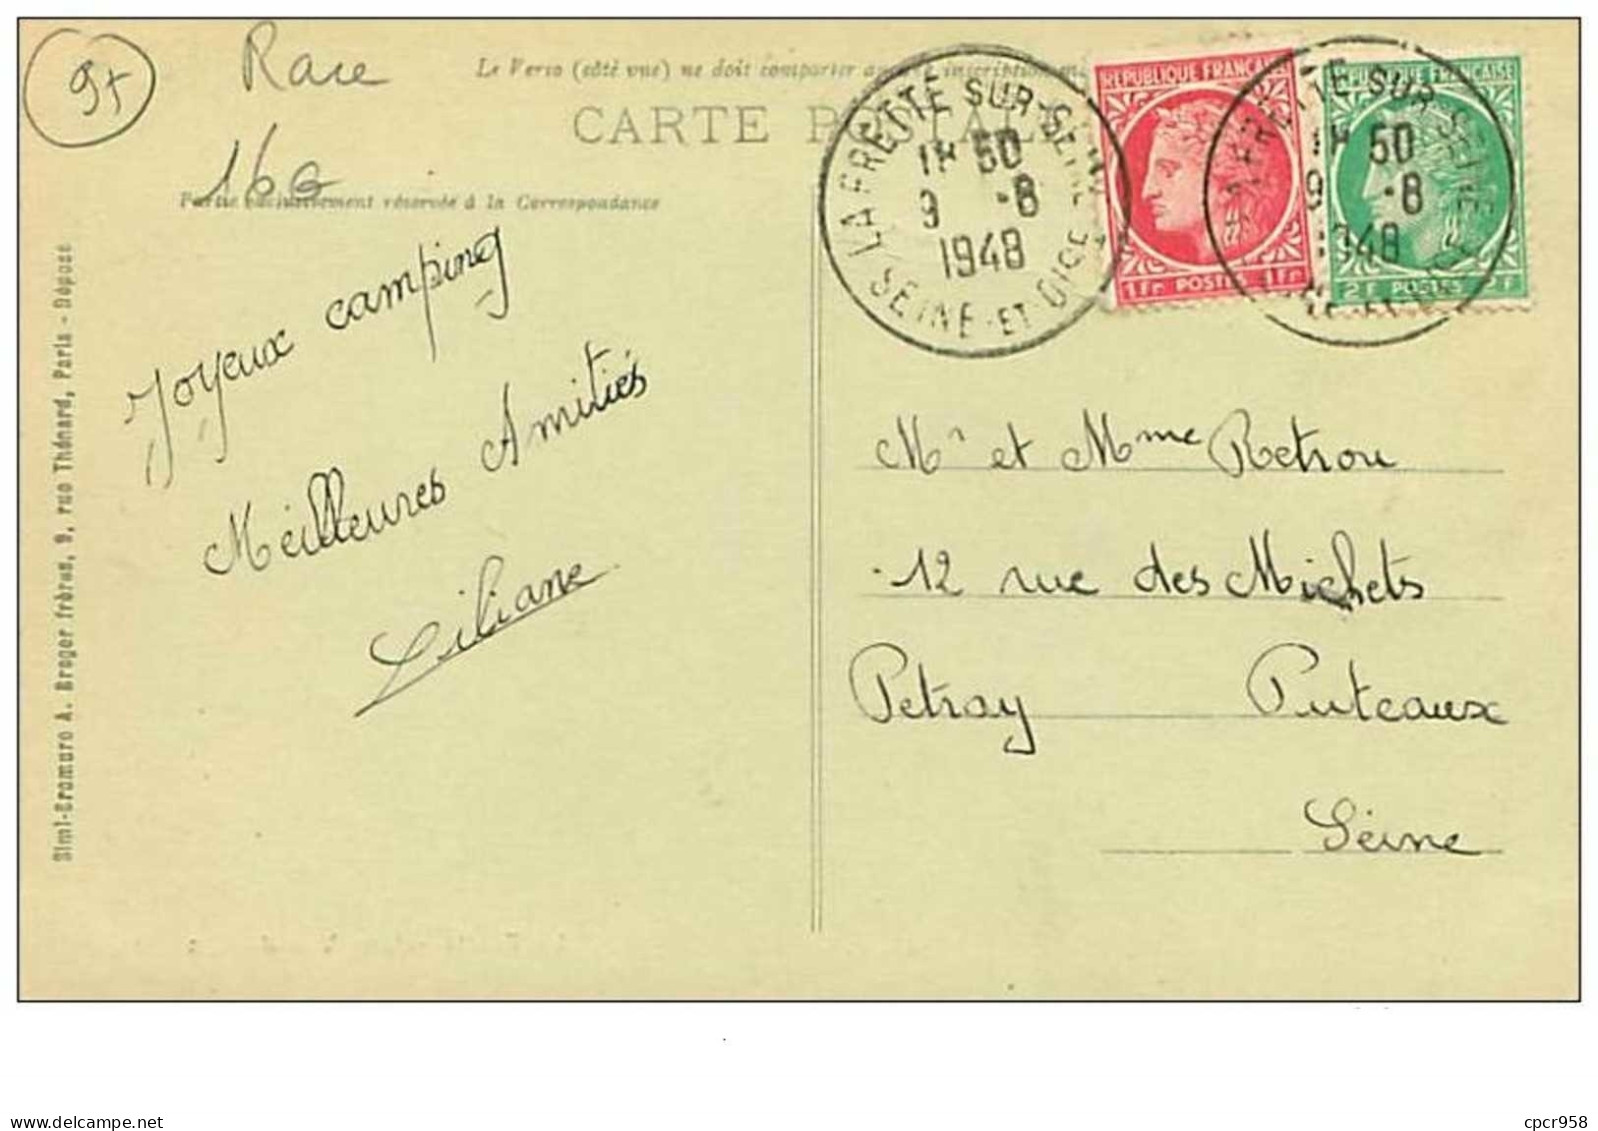 Rare
160
Le Verso (côté vue) ne doit comporter aucune inscription
CARTE POSTALE
Partie exclusivement réservée à la Correspondance
LA FRETTE SUR-SEINE
11H 50
9 -8
1948
SEINE-ET-OISE
REPUBLIQUE FRANÇAISE
1Fr POSTES 1Fr
REPUBLIQUE FRANÇAISE
2F POSTES 2F
LA FRETTE SUR-SEINE
1H 50
9 -8
1948
Joyeux camping
Meilleures Amitiés
Liliane
Mr et Mme Retrou
12 rue des Michets
Petray Puteaux
Seine
Simi-Bromure A. Breger frères, 9, rue Thénard, Paris - Déposé
www.delcampe.net
cpcr958